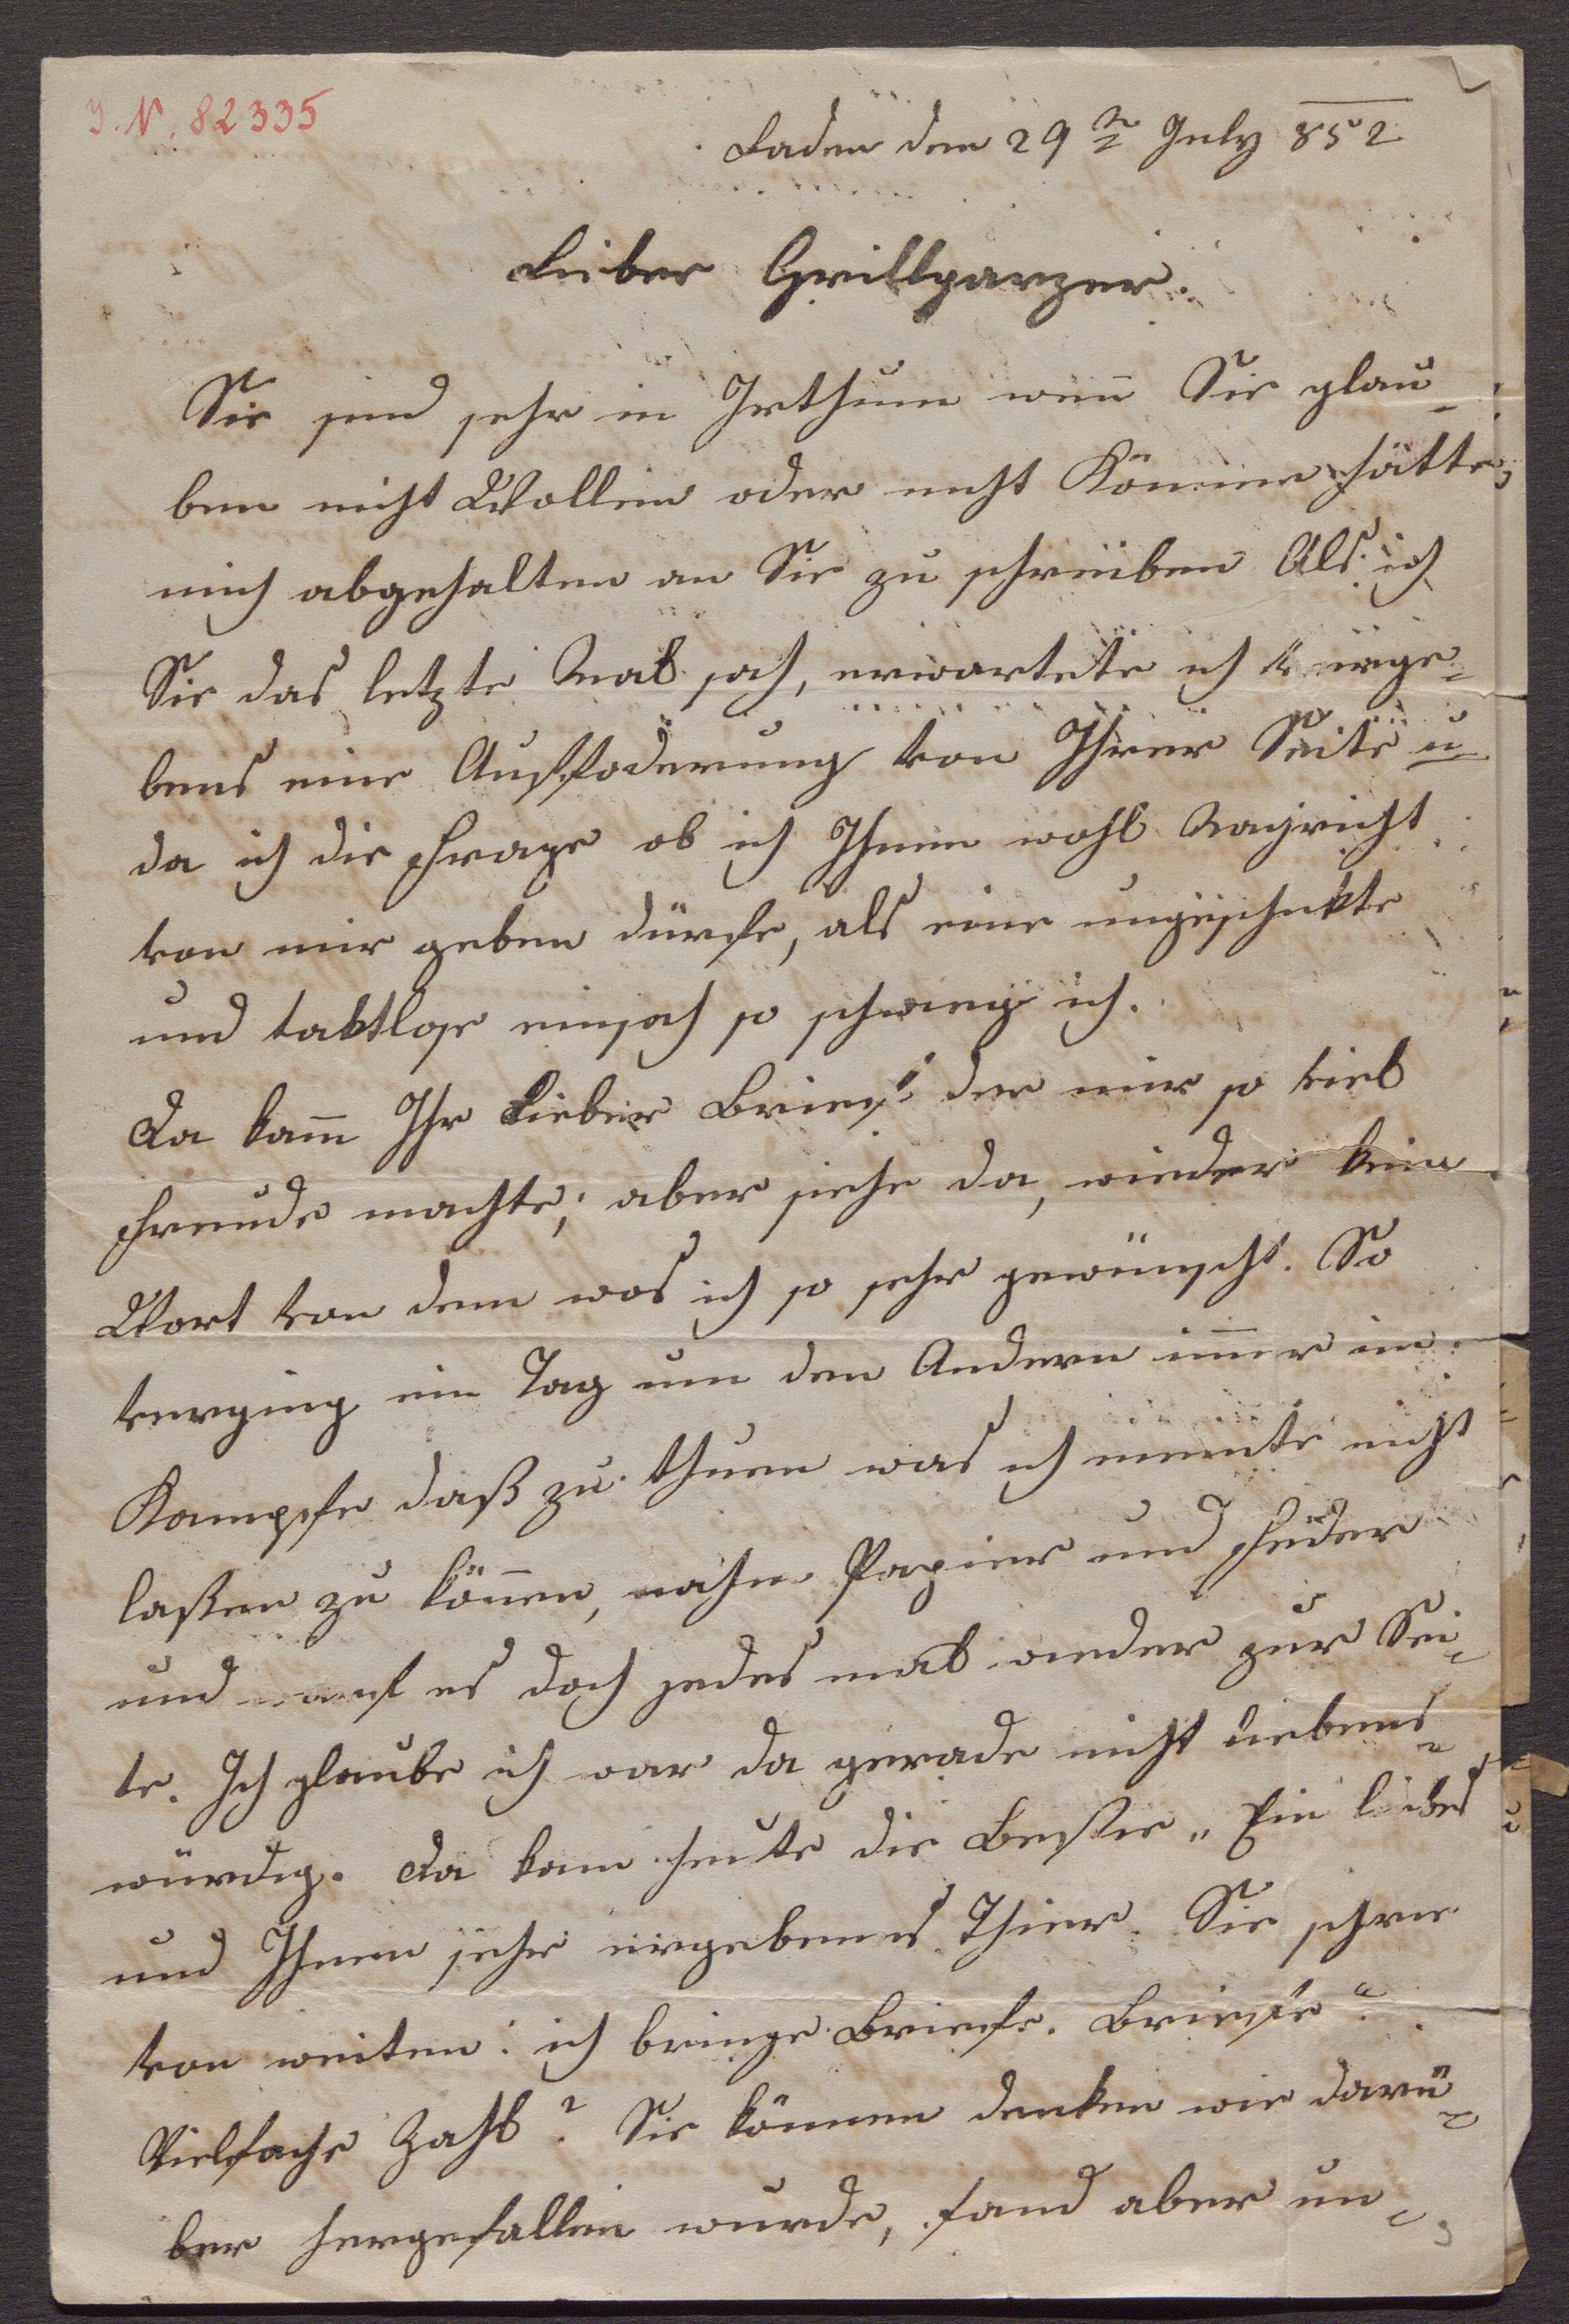 I. N. 82335
Baden den 29ten July 852
Lieber Grillparzer.
Sie sind sehr in Irthum wenn Sie glau-
ben nicht Wollen oder nicht Können hätte
mich abgehalten an Sie zu schreiben Als ich
Sie das letzte Mal sah, erwartete ich verge-
bens eine Aufforderung von Ihrer Seite u
da ich die Frage ob ich Ihnen wohl Nachricht
von mir geben dürfe, als eine ungeschikte
und taktlose einsah so schwieg ich.
Da kam̅ Ihr Lieber Brief der mir so viel
Freude machte; aber siehe da, wieder kein
Wort von dem was ich so sehr gewünscht. So
verging ein Tag um den Andern im̅er im
Kampfe daß zu thuen was ich meinte nicht
laßen zu kön̅en, nahm Papier und Feder
und warf es doch jedes mal wieder zur Sei-
te. Ich glaube ich war da gerade nicht liebens-
würdig. Da kam heute die Bestie „Ein liebes
und Ihnen sehr ergebenes Thier. Sie schrie
von weiten: ich bringe Briefe. Briefe"?
Vielfache Zahl? Sie können denken wie darü-
ber hergefallen wurde, fand aber un-